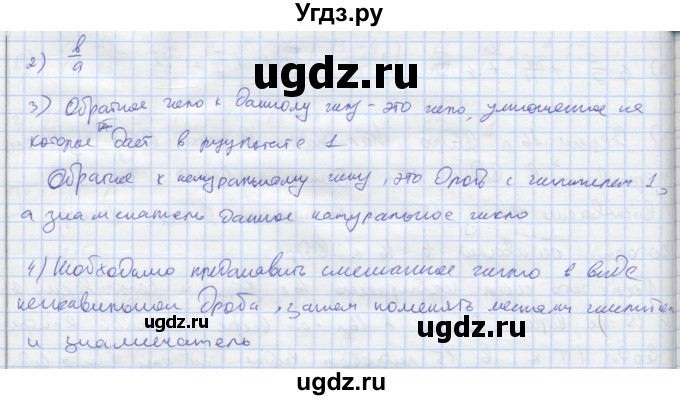 Угдз.ру
2) b/a
3) Обратное число к данному числу - это число, умноженное на
которое дает в результате 1
Обратное к натуральному числу, это дробь с числителем 1,
а знаменатель данное натуральное число
4) Необходимо представить смешанное число в виде
неправильной дроби, затем поменять местами числитель
и знаменатель
ugdz.ru
ugdz.ru
ugdz.ru
ugdz.ru
ugdz.ru
ugdz.ru
ugdz.ru